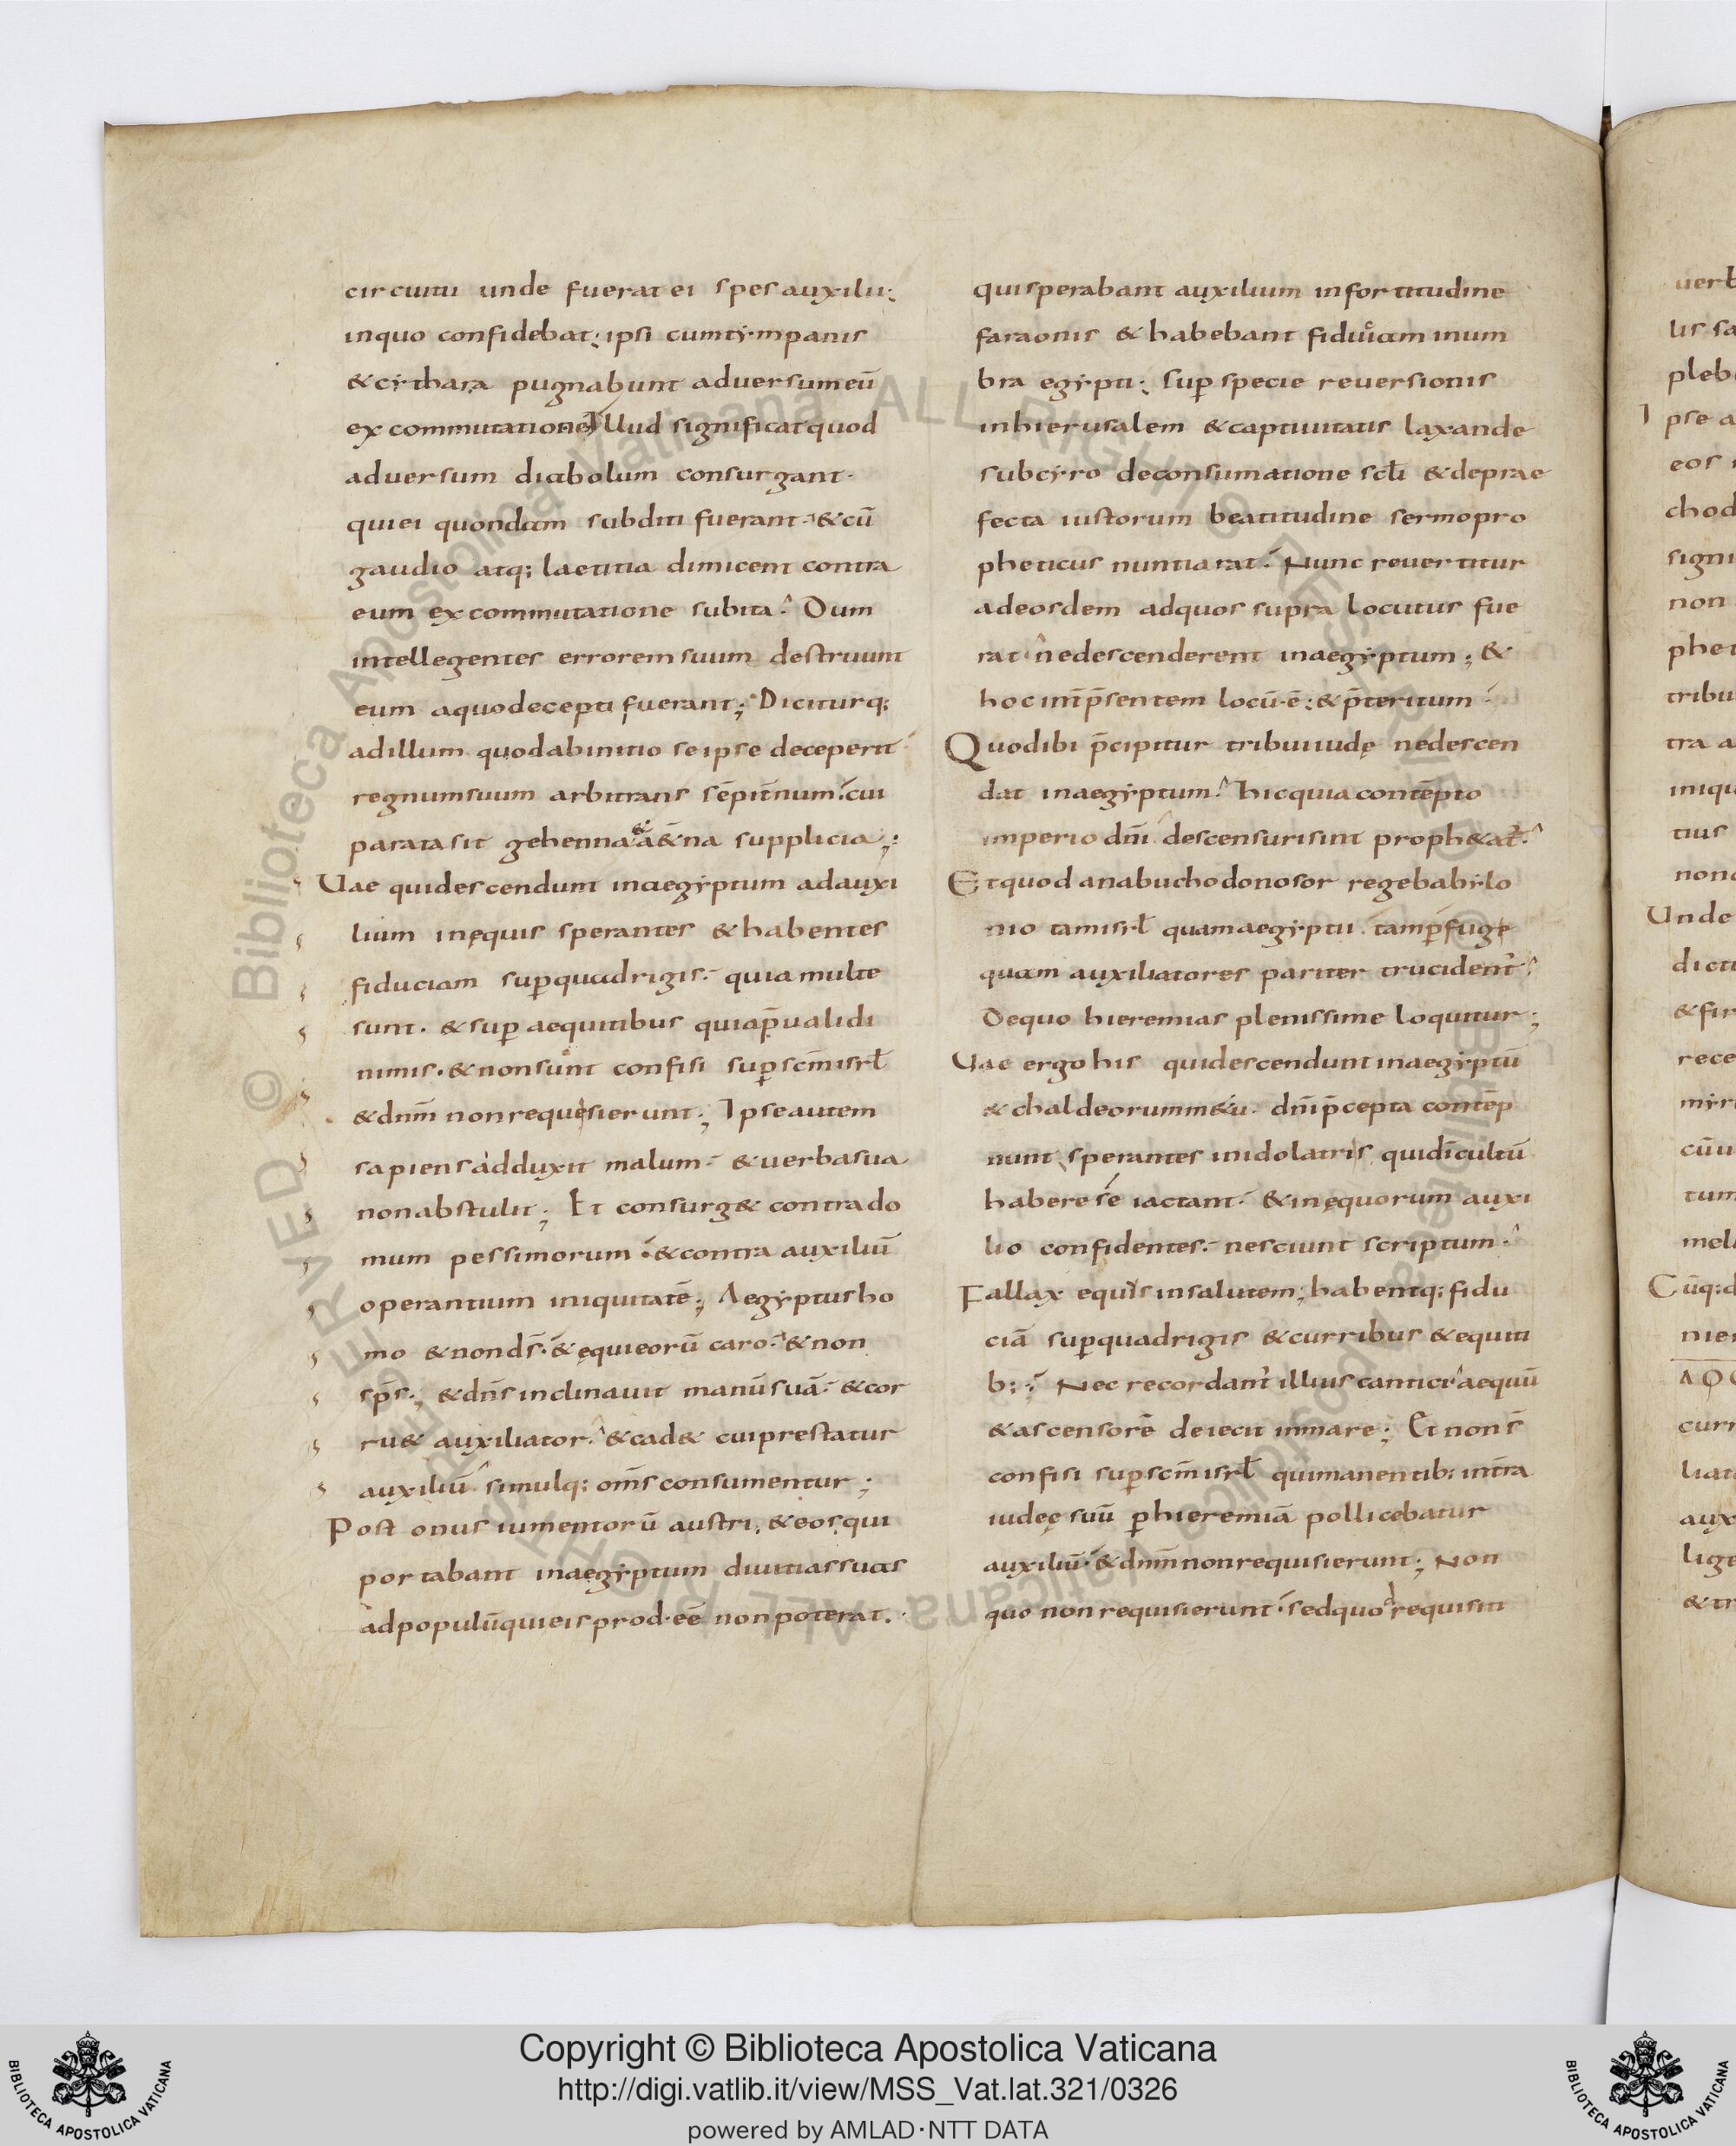 circuitu unde fuerat ei spes auxilii;
inquo confidebat; ipsi cumtympanis
&cythara pugnabunt aduersumeū
ex commutatione Illud significat quod
aduersum diabolum consurgant·
quiei quondam subditi fuerant· &cū
gaudio atq; laetitia dimicent contra
eum ex commutatione subita· Dum
intellegentes erroremsuum destruunt
eum aquodecepti fuerant; Diciturq;
adillum quodabinitio seipse deceperit
regnumsuum arbitrans sēpit̄num cui
paratasit gehenna & ā&̄na supplicia;
Uae quidescendunt inaegyptum adauxi
lium inęquis sperantes &habentes
fiduciam sup̄quadrigis· quia multe
sunt· &sup̄ aequitibus quiap̄ualidi
nimis· &nonsunt confisi sup̄scm̄isrł
&dnm̄ nonrequesierunt; Ipseautem
sapiensadduxit malum· &uerbasua
nonabstulit; Et consurg& contrado
mum pessimorum· &contra auxiliū
operantium iniquitatē; Aegyptusho
mo &nonds̄· &ęquieorū caro· &non
sps̄; &dns̄inclinauit manūsuā· &cor
ru& auxiliator· &cad& cuiprestatur
auxiliū simulq; oms̄consumentur;
Post onus iumentorū austri, &eosqui
portabant inaegyptum diuitiassuas
adpopulūquieisprod·eē nonpoterat·
quisperabant auxilium infortitudine
faraonis &habebant fiduciam inum
bra egypti; sup̄specie reuersionis
inhierusalem &captiuitatis laxande
subcyro deconsumatione scłi &deprae
fecta iustorum beatitudine sermopro
pheticus nuntiarat· Nunc reuertitur
adeosdem adquos supra locutus fue
rat· nedescenderent inaegyptum; &
hoc int̄p̄sentem locū·ē; &p̄teritum·
Quodibi p̄cipitur tribuiudę nedescen
dat inaegyptum· hicquiacontēpto
imperio dnī descensurisint proph&at·
Etquod anabuchodonosor regebabylo
nio tamisrł quamaegyptii tamp̄fuge
quam auxiliatores pariter trucident̄·
Dequo hieremias plenissime loquitur;
Uae ergo his quidescendunt inaegyptū
&chaldeorumm&u· dnīp̄cepta contēp
nunt sperantes inidolatris quidicultū
habere se iactant· &inęquorum auxi
lio confidentes· nesciunt scriptum·
Fallax equus insalutem; habentq; fidu
ciā sup̄quadrigis &curribus &equiti
b;· Nec recordant̄ illius cantici aequū
&ascensorē deiecit inmare; Et nons̄
confisi sup̄scm̄isrł quimanentib; intra
iudeę suū p̄hieremiā pollicebatur
auxiliū· &dnm̄nonrequisierunt; Non
quo nonrequisierunt· sedquo requisiti
uerb
lis sa
pleb
Ipse a
eos
chod
signi
non
phet
tribu
tra a
iniqu
tius
nonc
Unde
dictu
&fir
rece
myr
cūu
tum
mel
Cūq;d
nier
curr
liat
aux
lige
&tr
Copyright © Biblioteca Apostolica Vaticana
http://digi.vatlib.it/view/MSS_Vat.lat.321/0326
powered by AMLAD·NTT DATA
BIBLIOTECA APOSTOLICA VATICANA
BIBLIOTECA APOSTOLICA VATICANA